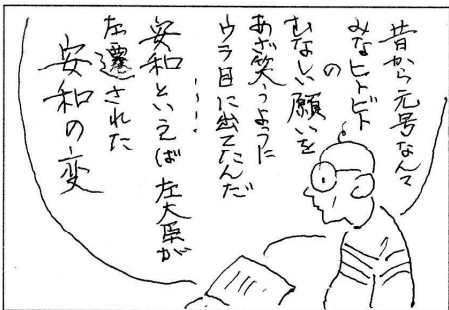 昔から元号なんて
みなヒトビト
の
むなしい願いを
あざ笑うように
ウラ目に出てたんだ
……
安和といえば左大臣が
左遷された
安和の変